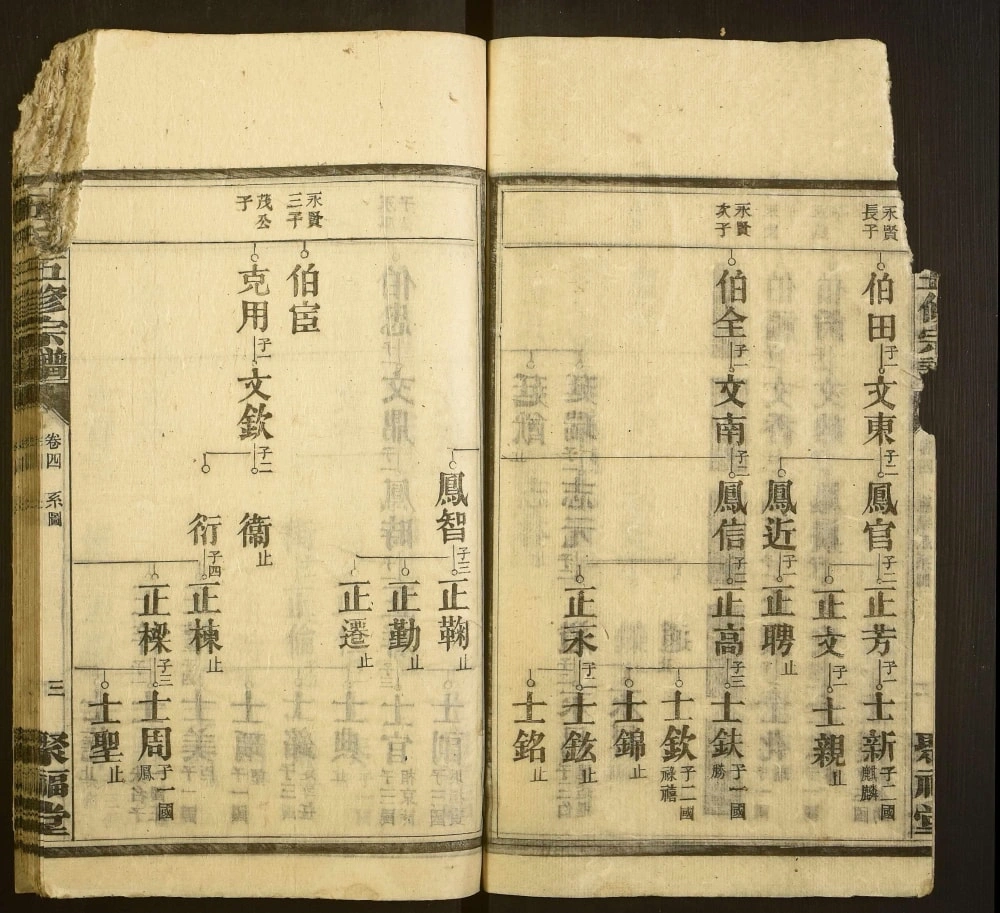 永賢長子
伯田 子一
文東 子二
鳳官 子二
正芳 子一
士新 子二 國麒 麟
正文 子一
士親 止
鳳近 子一
正聘 止
永賢次子
伯全 子一
文南 子二
鳳信 子二
正高 子三
士鈇 子一 國勝
士欽 子二 國祿 禧
士錦 止
正永 子二
士鉉 止
士銘 止
鳳智 子三
正鞠 止
正勤 止
正遷 止
永賢三子
伯宦
茂公子
克用 子一
文欽 子二
衞 止
衍 子四
正棟 止
正樑 子三
士周 子一 國鳳
士聖 止
五修宗譜
卷四 系圖
三
聚福堂